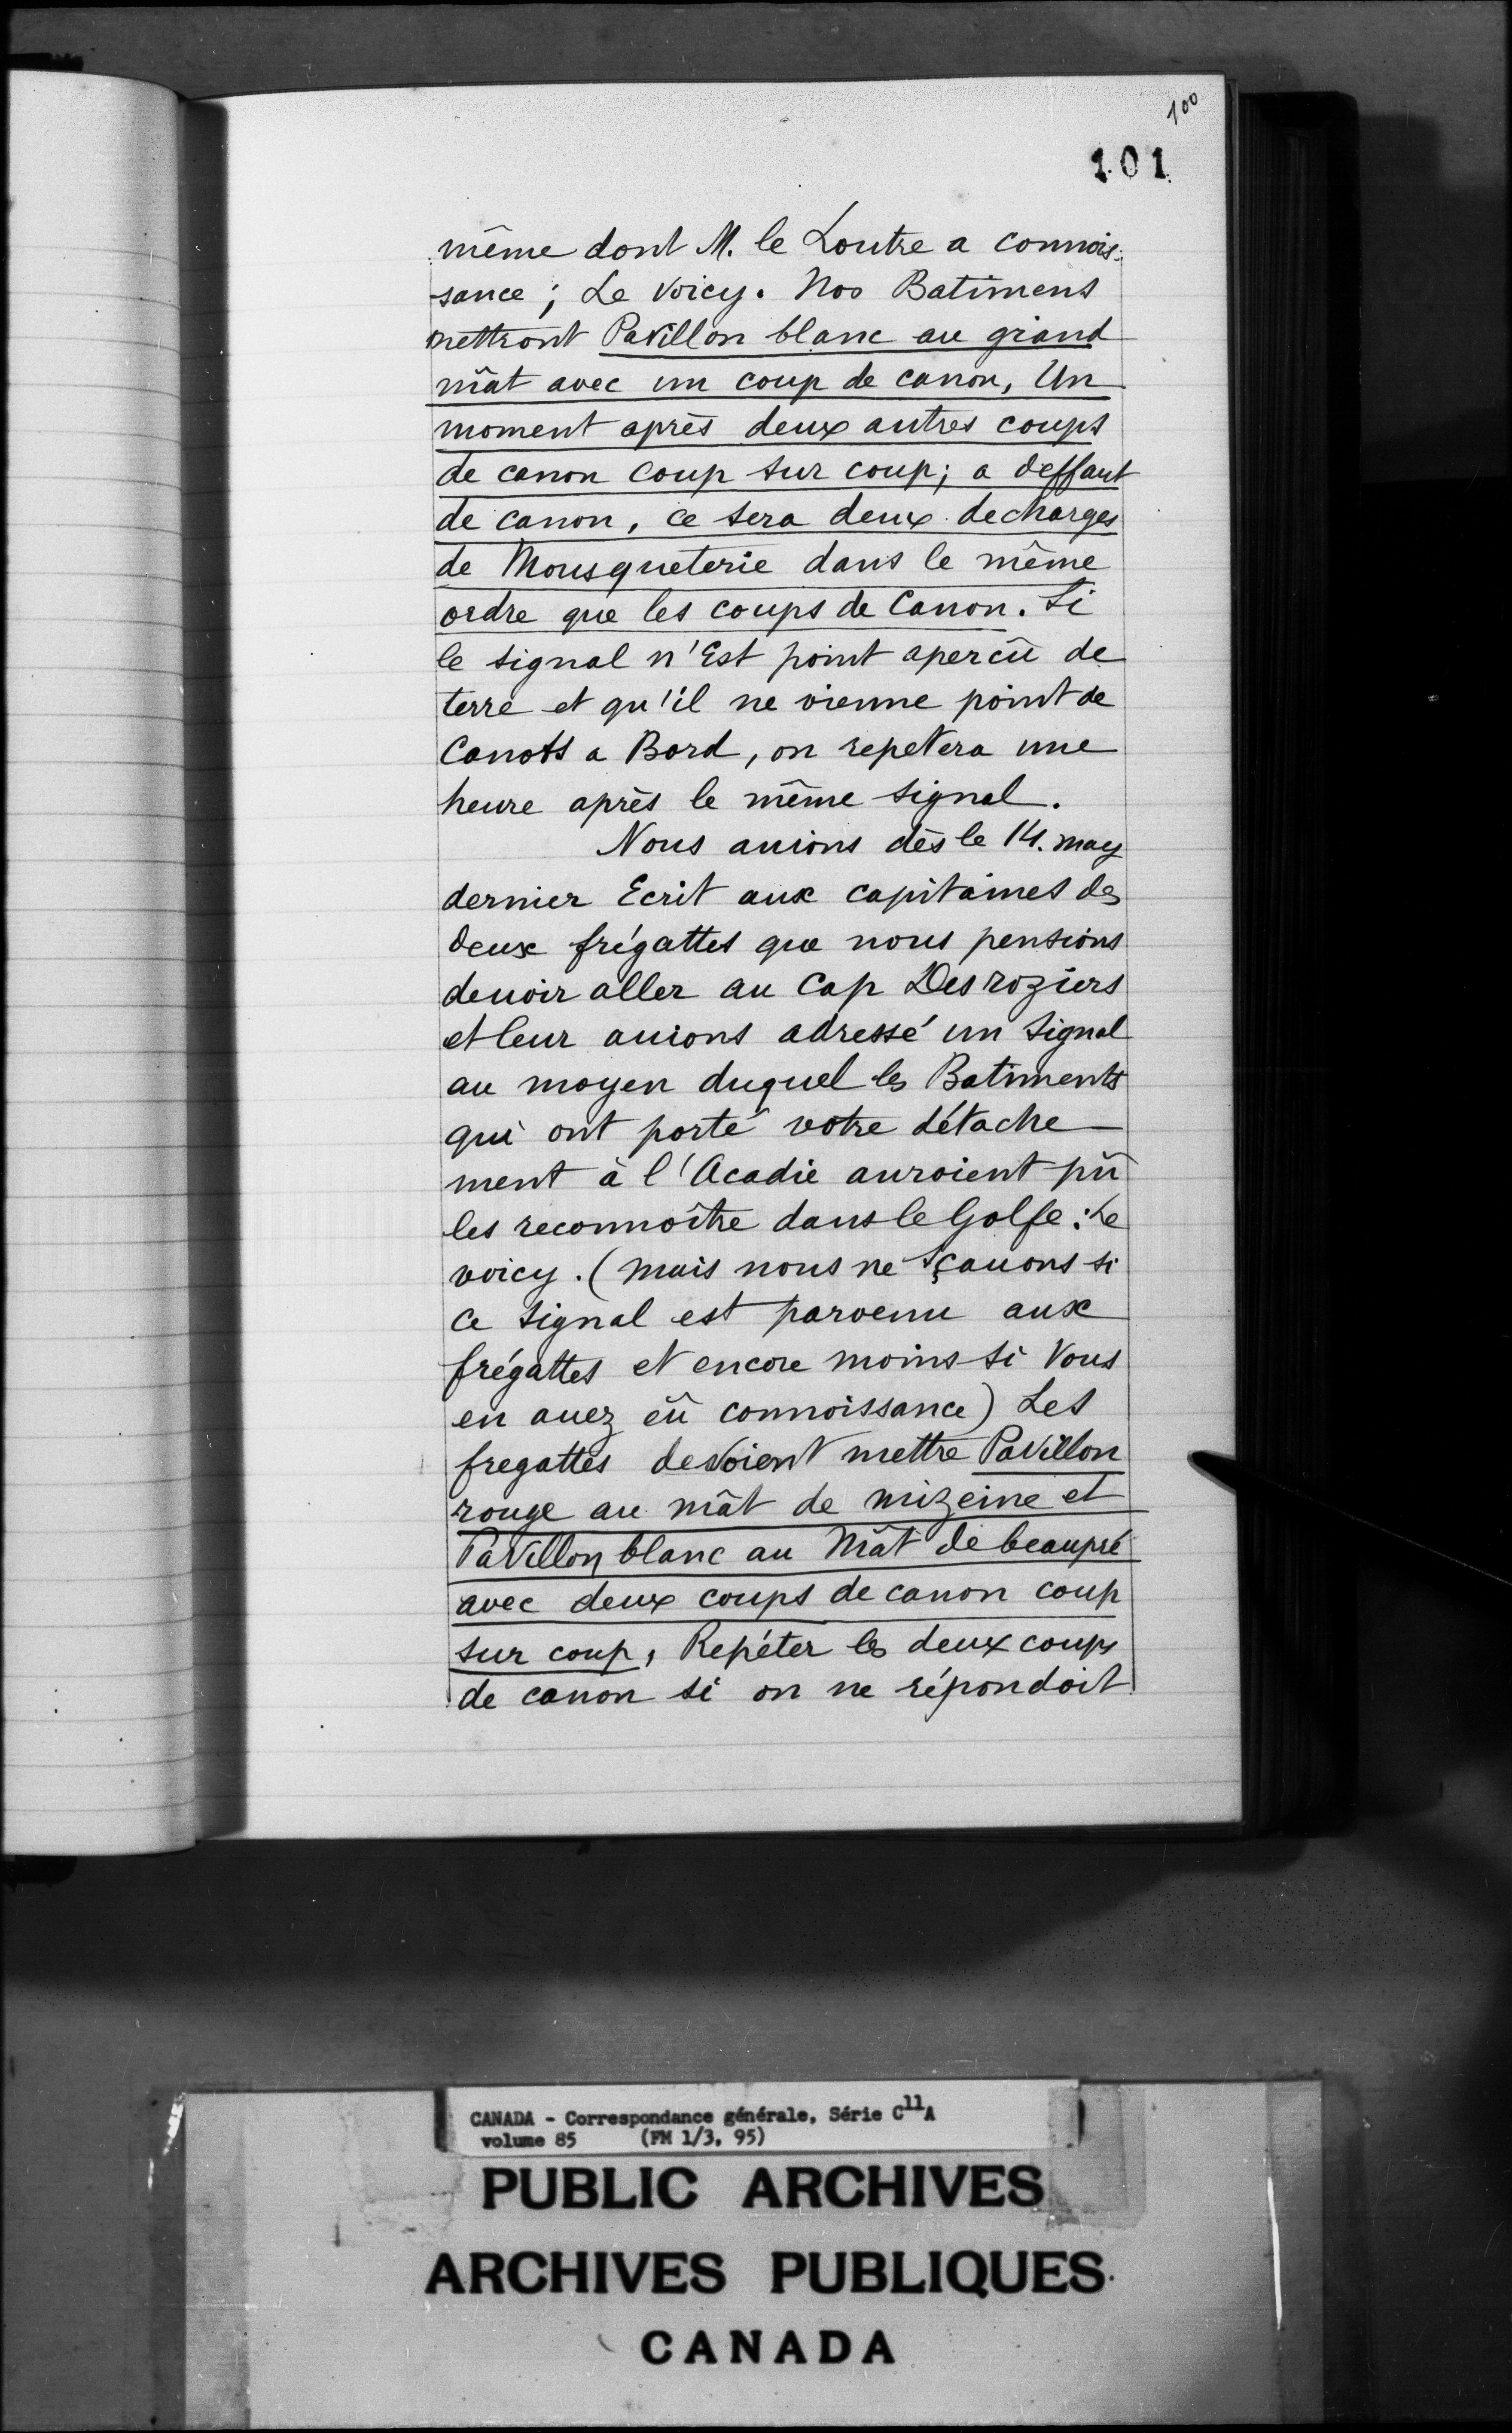 100
101
même dont M. le Loutre a connois-
sance ; Le voicy. Nos Batimens
mettront Pavillon blanc au grand
mât avec un coup de canon, Un
moment après deux autres coups
de canon coup sur coup ; a deffaut
de canon, ce sera deux decharges
de Mousqueterie dans le même
ordre que les coups de Canon. Si
le signal n'Est point apercû de
terre et qu'il ne vienne point de
Canots a Bord, on repetera une
heure après le même signal.
Nous auions dès le 14. may
dernier Ecrit aux capitaines des
deux frégattes que nous pensions
deuoir aller au Cap Des roziers
et leur auions adressé un Signal
au moyen duquel les Batiments
qui ont porté votre détache
ment à l'Acadie auroient pû
les reconnoître dans le Golfe : Le
voicy. (mais nous ne sçauons si
ce signal est parvenu aux
frégattes et encore moins si Vous
en auez eû connoissance) Les
fregattes devoient mettre Pavillon
rouge au mât de mizeine et
Pavillon blanc au Mât de beaupré
avec deux coups de canon coup
sur coup, Repéter les deux coups
de canon si on ne répondoit
CANADA - Correspondance générale, Série C11A
volume 85 (FM 1/3, 95)
PUBLIC ARCHIVES
ARCHIVES PUBLIQUES
CANADA